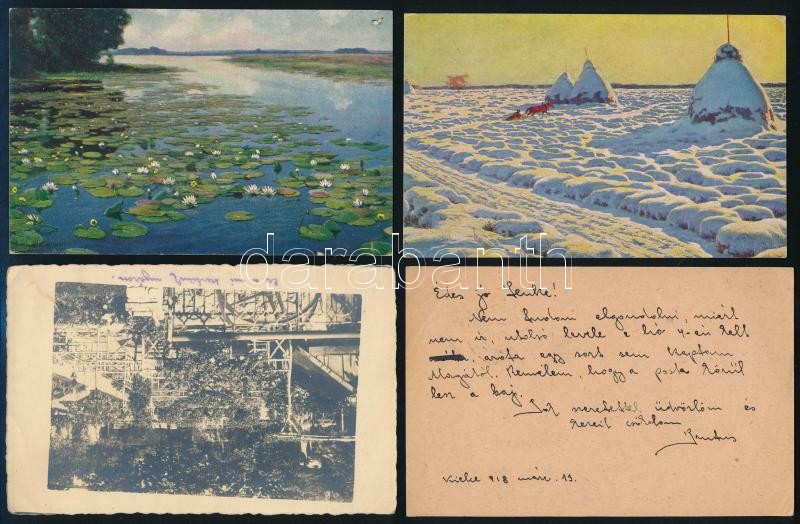 darabanth
Édes jó Lenke!
Nem tudom elgondolni, miért
nem ír, utolsó levele e hó 4-én kelt
azóta egy sort sem kaptam
Magától. Remélem, hogy a posta körül
lesz a baj.
Sok szeretettel üdvözlöm és
kezeit csókolom
Kielce 918 márc. 19.